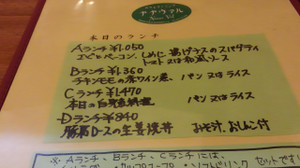 ナナウマル
本日のランチ
Aランチ ¥1,050
エビとベーコン、しめじ 揚げナスのスパゲティ
トマト又は和風ソース
Bランチ ¥1,360
チキンモモの赤ワイン煮、パン又はライス
Cランチ ¥1,470
本日の白身魚料理 パン又はライス
Dランチ ¥840
豚肩ロースの生姜焼丼 みそ汁、おしんこ付
※Aランチ、Bランチ、Cランチには、
ソフトドリンク セットです